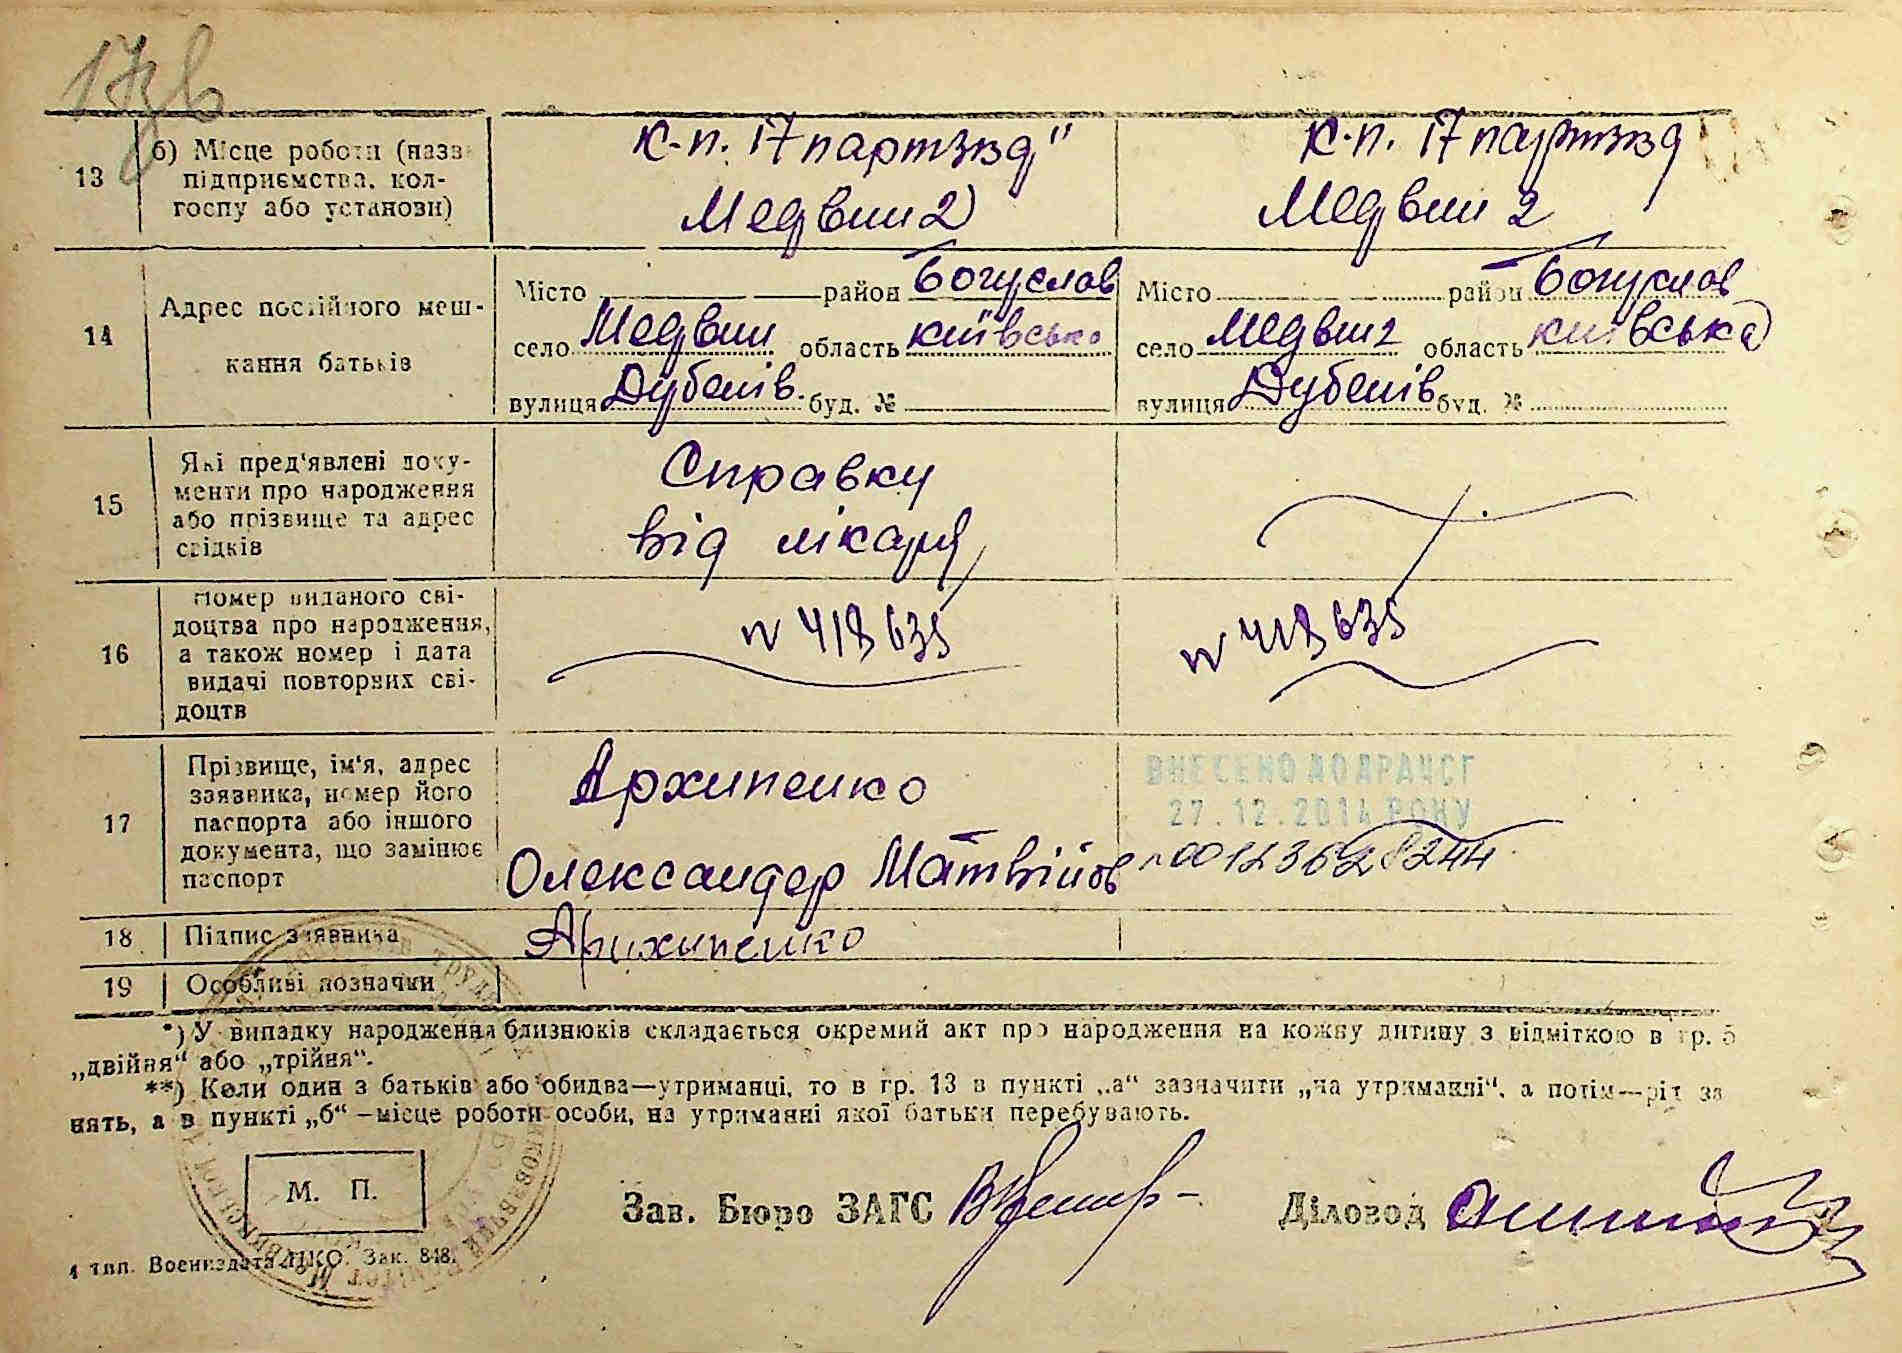 13
б) Місце роботи (назв
підприємства, кол-
госпу або установи)
к.п. 17 партзізд"
Медвин 2
к.п. 17 партзізд
Медвин 2
14
Адрес постійного меш-
кання батьків
Місто район Богуслав
село Медвин область київсько
вулиця Дубенів. буд. №
Місто район Богуслав
село Медвин 2 область київська
вулиця Дубенів буд. №
15
Які пред'явлені доку-
менти про народження
або прізвище та адрес
свідків
Справку
від лікаря
16
Номер виданого сві-
доцтва про народження,
а також номер і дата
видачі повторних сві-
доцтв
N 418635
N 418635
17
Прізвище, ім'я, адрес
заявника, номер його
паспорта або іншого
документа, що замінює
паспорт
Архипенко
Олександер Матвійов
ВНЕСЕНО ДО ДРАЦСГ
27.12.2014 РОКУ
00123628244
18
Підпис заявника
Архипенко
19
Особливі позначки
*) У випадку народження близнюків складається окремий акт про народження на кожну дитину з відміткою в гр. 5
„двійня“ або „трійня“.
**) Коли один з батьків або обидва—утриманці, то в гр. 13 в пункті „а“ зазначити „на утриманні“, а потім—рід за
нять, а в пункті „б“ —місце роботи особи, на утриманні якої батьки перебувають.
М. П.
Зав. Бюро ЗАГС
Діловод
4 тип. Воениздата НКО. Зак. 848.